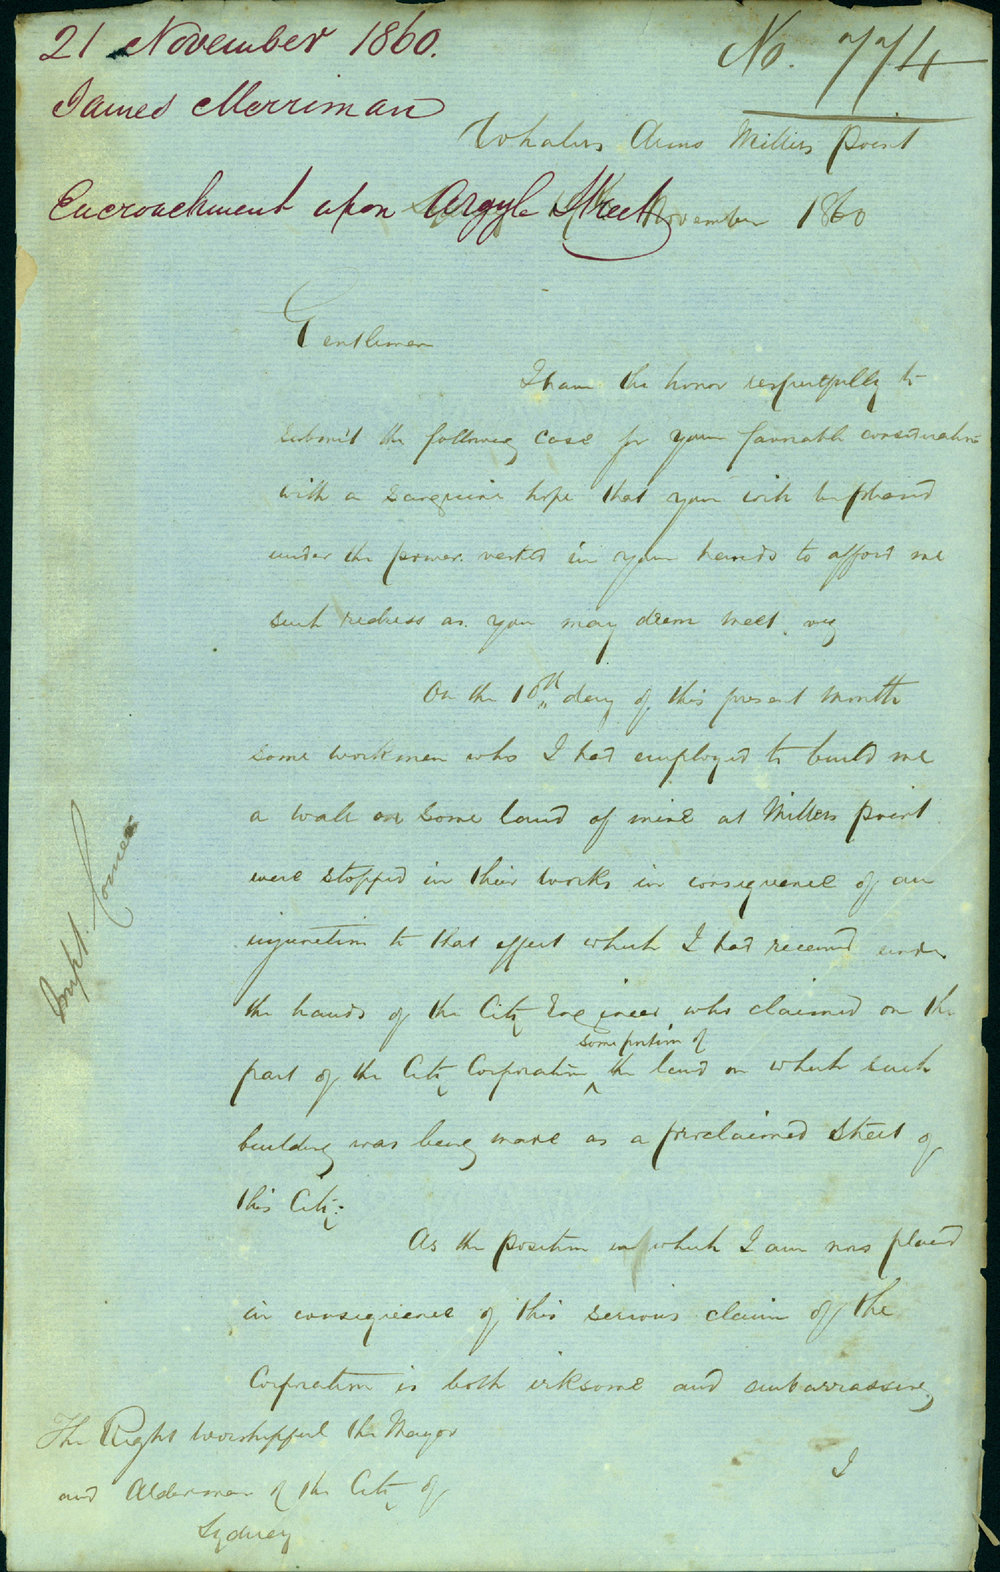 21 November 1860.
No. 774
James Merriman
Whalers Arms Millers point
Encroachment upon Argyle Street
November 1860
Gentlemen
I have the honor respectfully to
submit the following case for your favorable consideration
with a sanguine hope that you will be pleased
under the power vested in your hands to afford me
such redress as you may deem meet. viz
On the 10th day of this present month
some workmen who I had employed to build me
a wall on some land of mine at Millers point
were stopped in their works in consequence of an
injunction to that effect which I had received under
the hands of the City Engineer who claimed on the
some portion of
part of the City Corporation ^ the land on which such
building was being made as a proclaimed street of
this City.
As the position in which I am now placed
in consequence of this serious claim of the
Corporation is both irksome and embarrassing
I
The Right worshipful the Mayor
and Alderman of the City of
Sydney